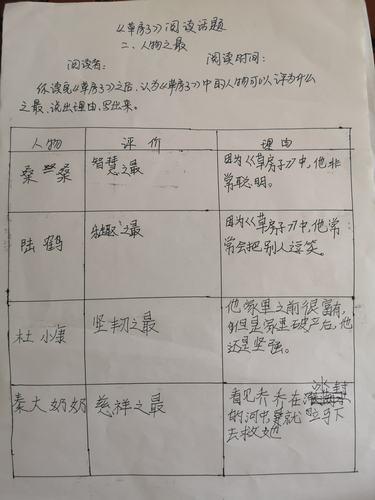 《草房子》阅读话题
二、人物之最
阅读者： 阅读时间：
你读完《草房子》之后，认为《草房子》中的人物可以评为什么
之最，说出理由，写出来。
人物 评价 理由
桑桑 智慧之最 因为《草房子》中，他非
常聪明。
陆鹤 之最 因为《草房子》中，他常
常会把别人逗笑。
杜小康 坚韧之最 他家里之前很富有，
但是家里破产后，他
还是坚强。
秦大奶奶 慈祥之最 看见乔乔在冰封
的河中，就立马下
去救她